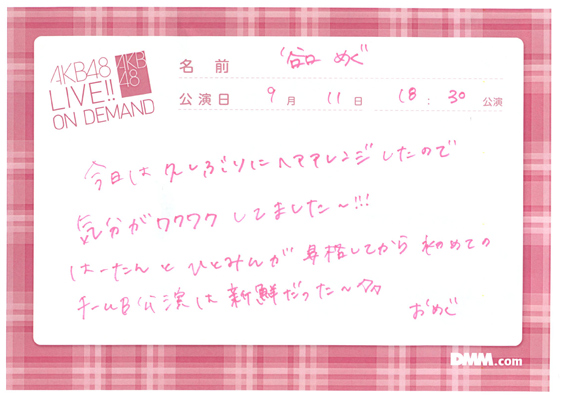 AKB48
LIVE!!
ON DEMAND
AKB
48
名前 谷口 めぐ
公演日 9月 11日 18:30 公演
今日は 久しぶりに ヘアアレンジしたので
気分がワクワク してました〜!!!
はーたんと ひとみんが 昇格してから 初めての
チームB公演は 新鮮だった〜☆☆
おめぐ
DMM.com